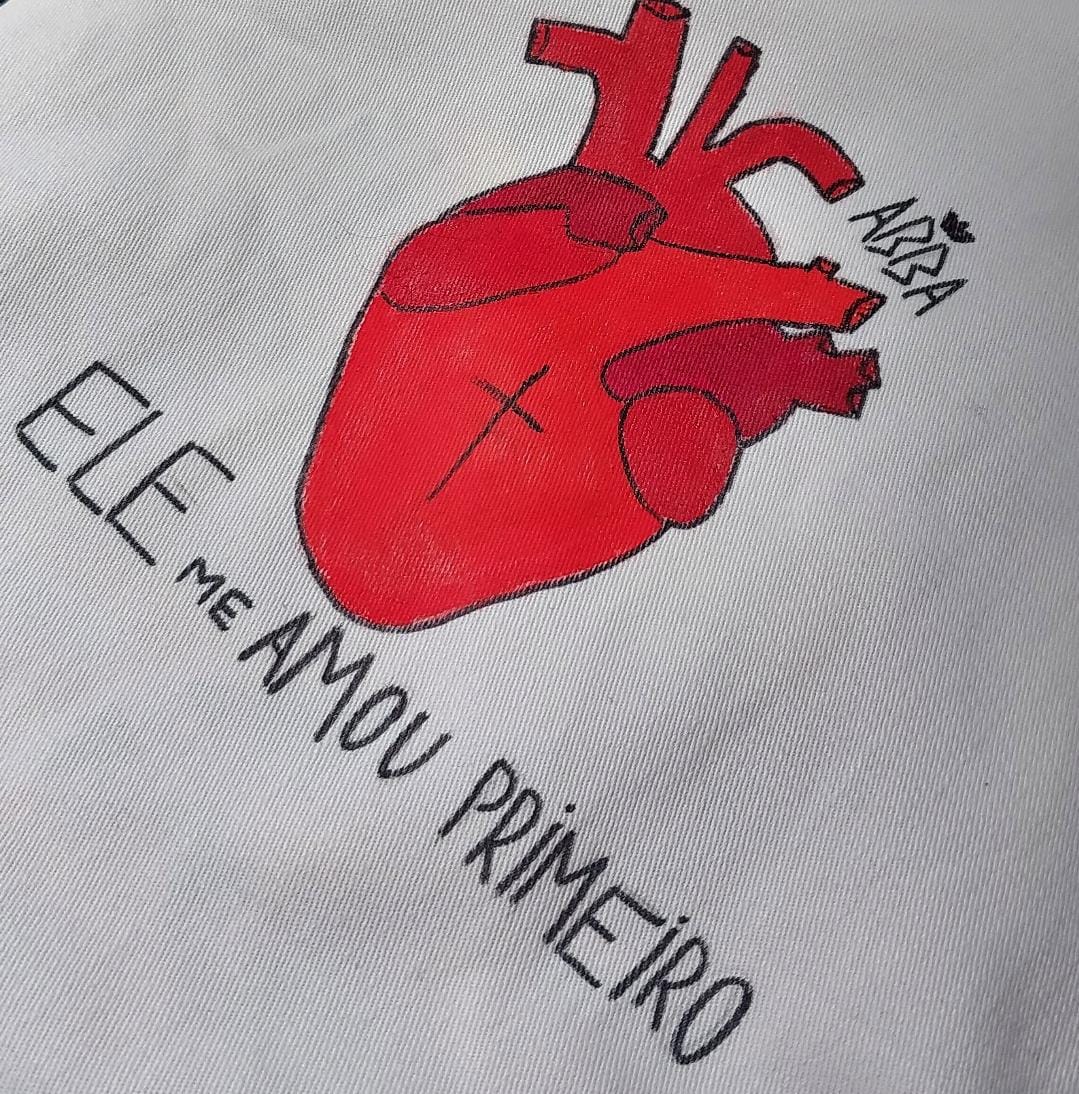 ABBA
ELE ME AMOU PRIMEIRO